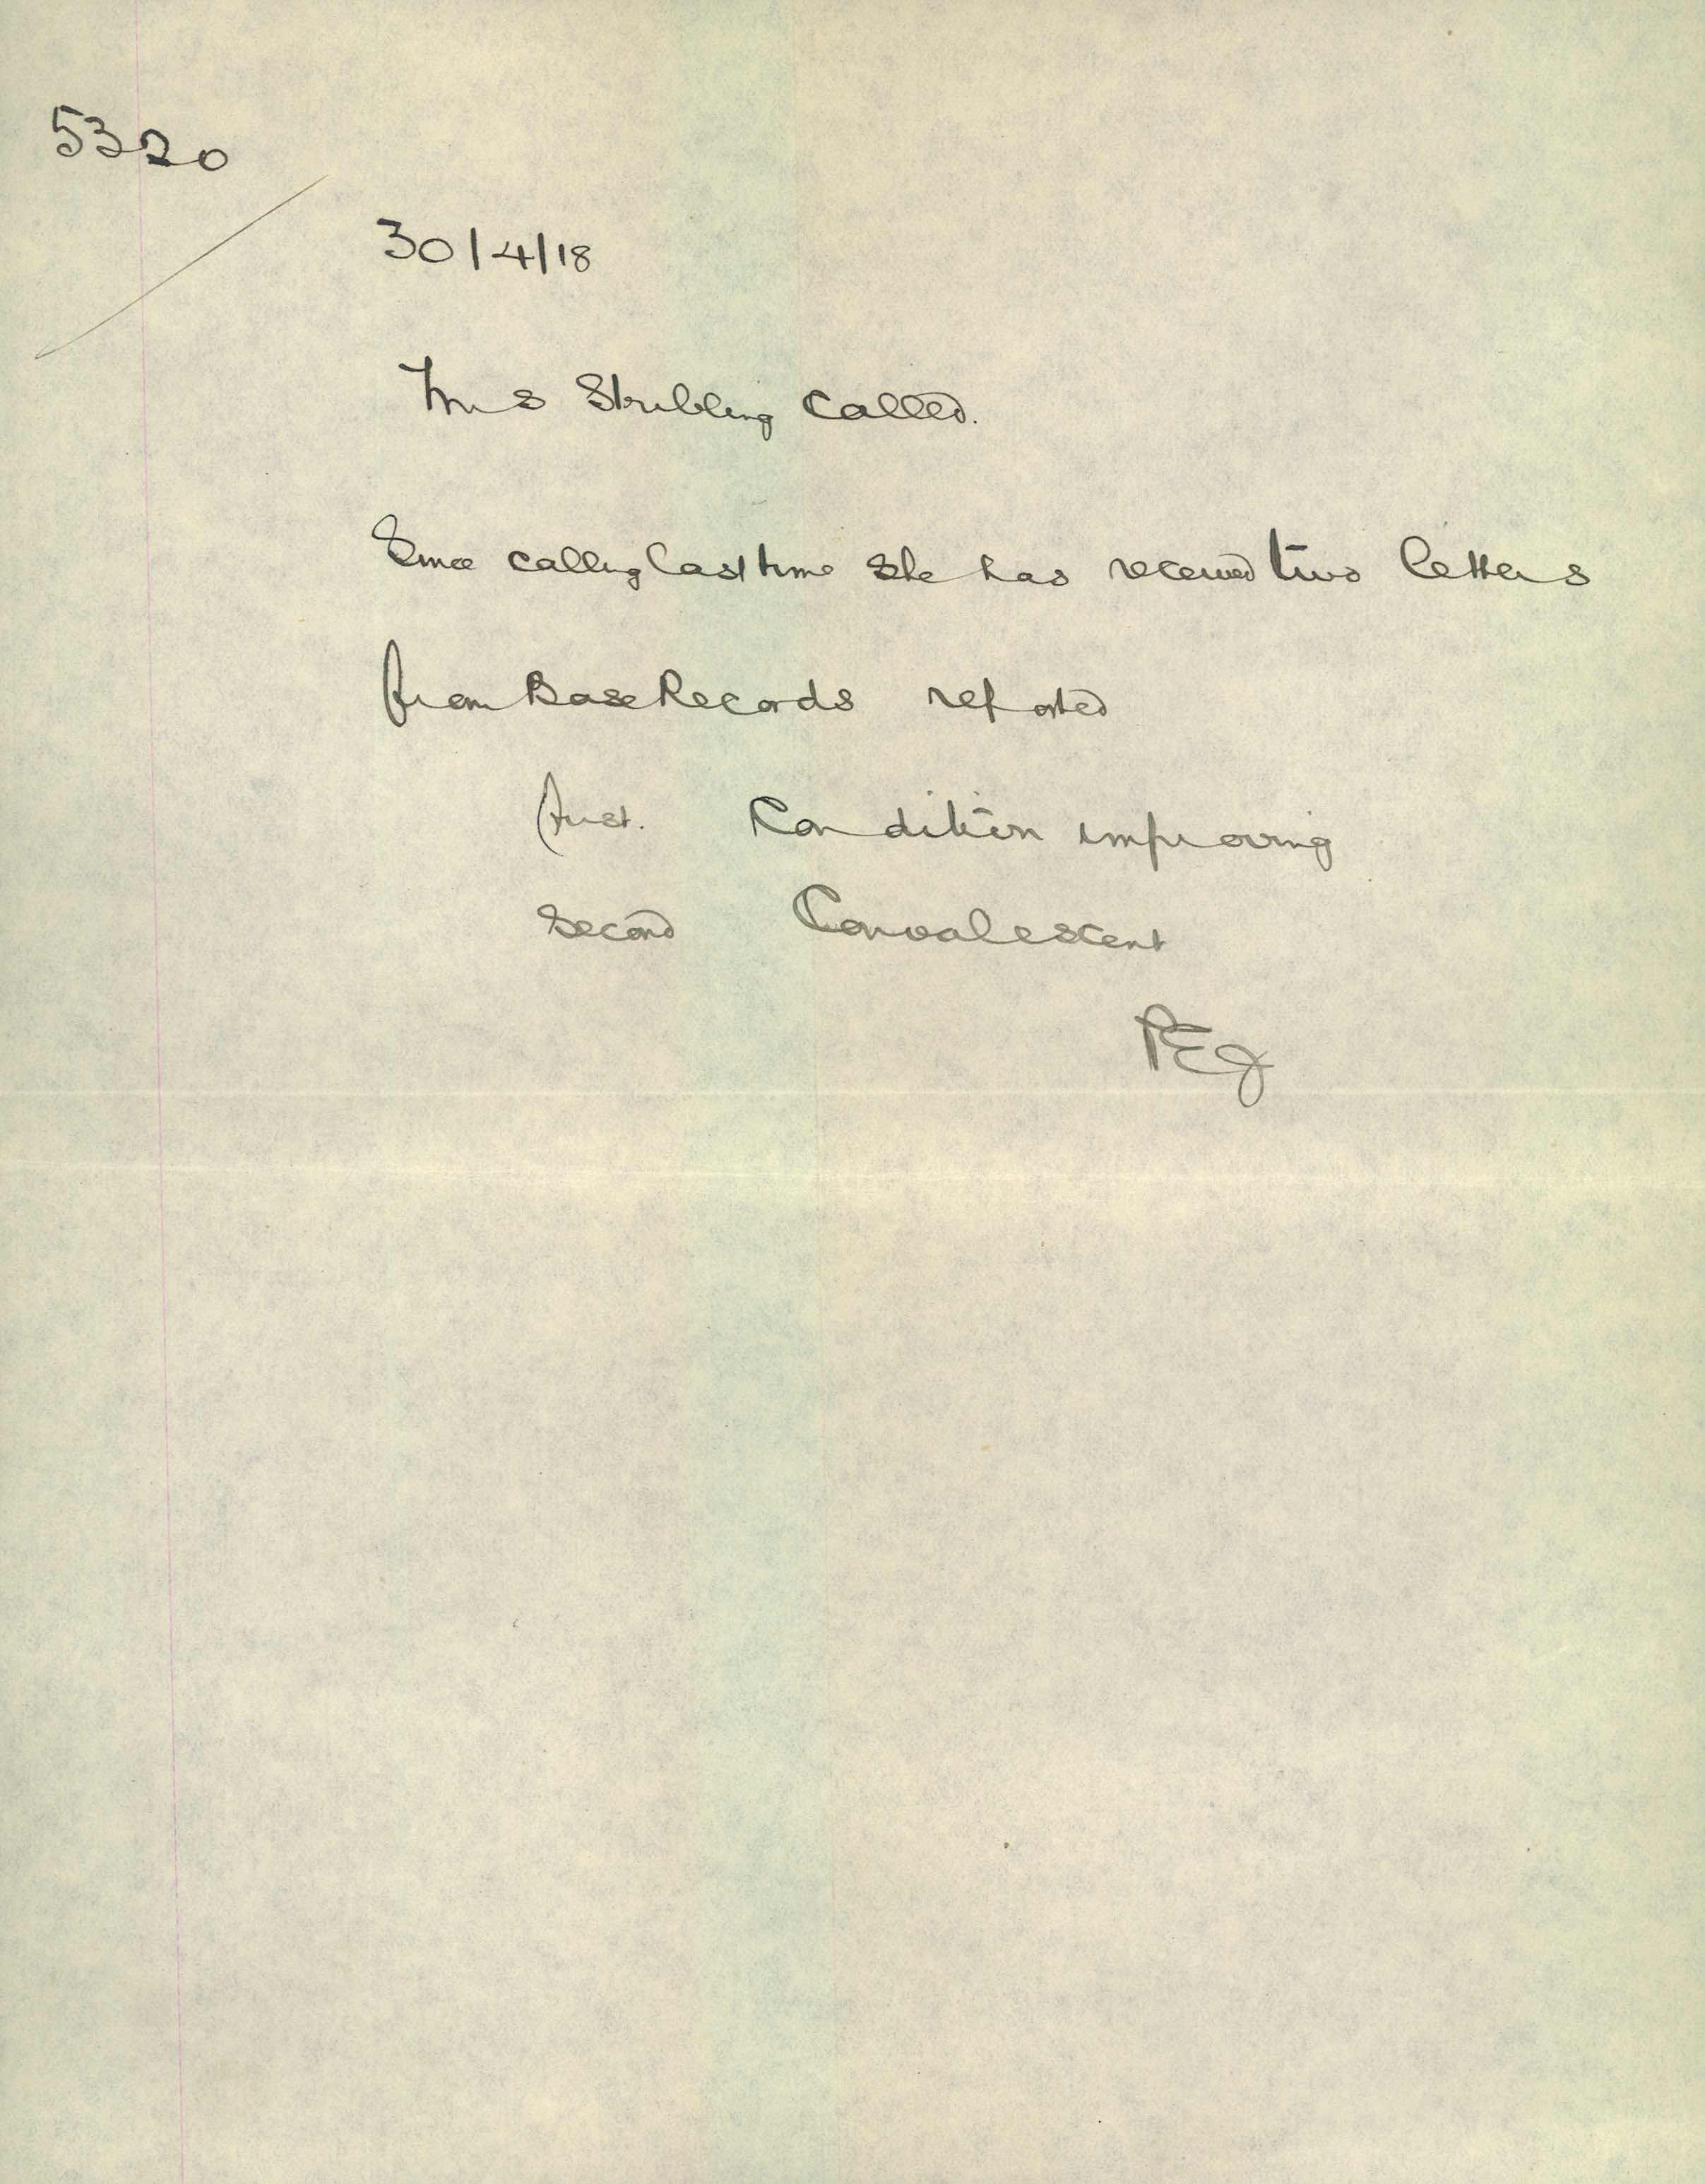 5320
30/4/18
Mrs Stribling called.
Since calling last time she has received two letters
from Base Records reported
first. Condition improving
Second Convalescent
PEJ